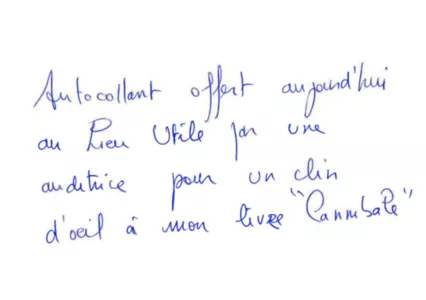 Autocollant offert aujourd'hui
au Lieu Utile par une
auditrice pour un clin
d'oeil à mon livre "Cannibale"